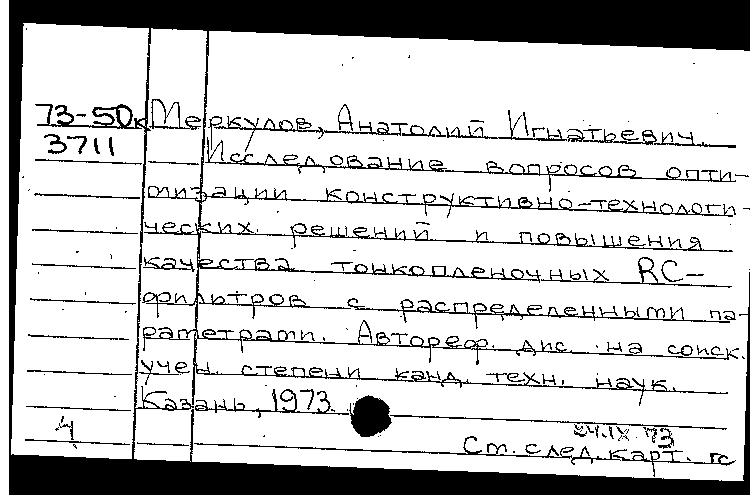 73-50к Меркулов, Анатолий Игнатьевич.
3711 Исследование вопросов опти-
мизации конструктивно-технологи-
ческих решений и повышения
качества тонкопленочных RC-
фильтров с распределенными па-
раметрами. Автореф. дис. на соиск.
учен. степени канд. техн. наук.
Казань, 1973.
24.IX.73
4 Ст. след. карт. гс